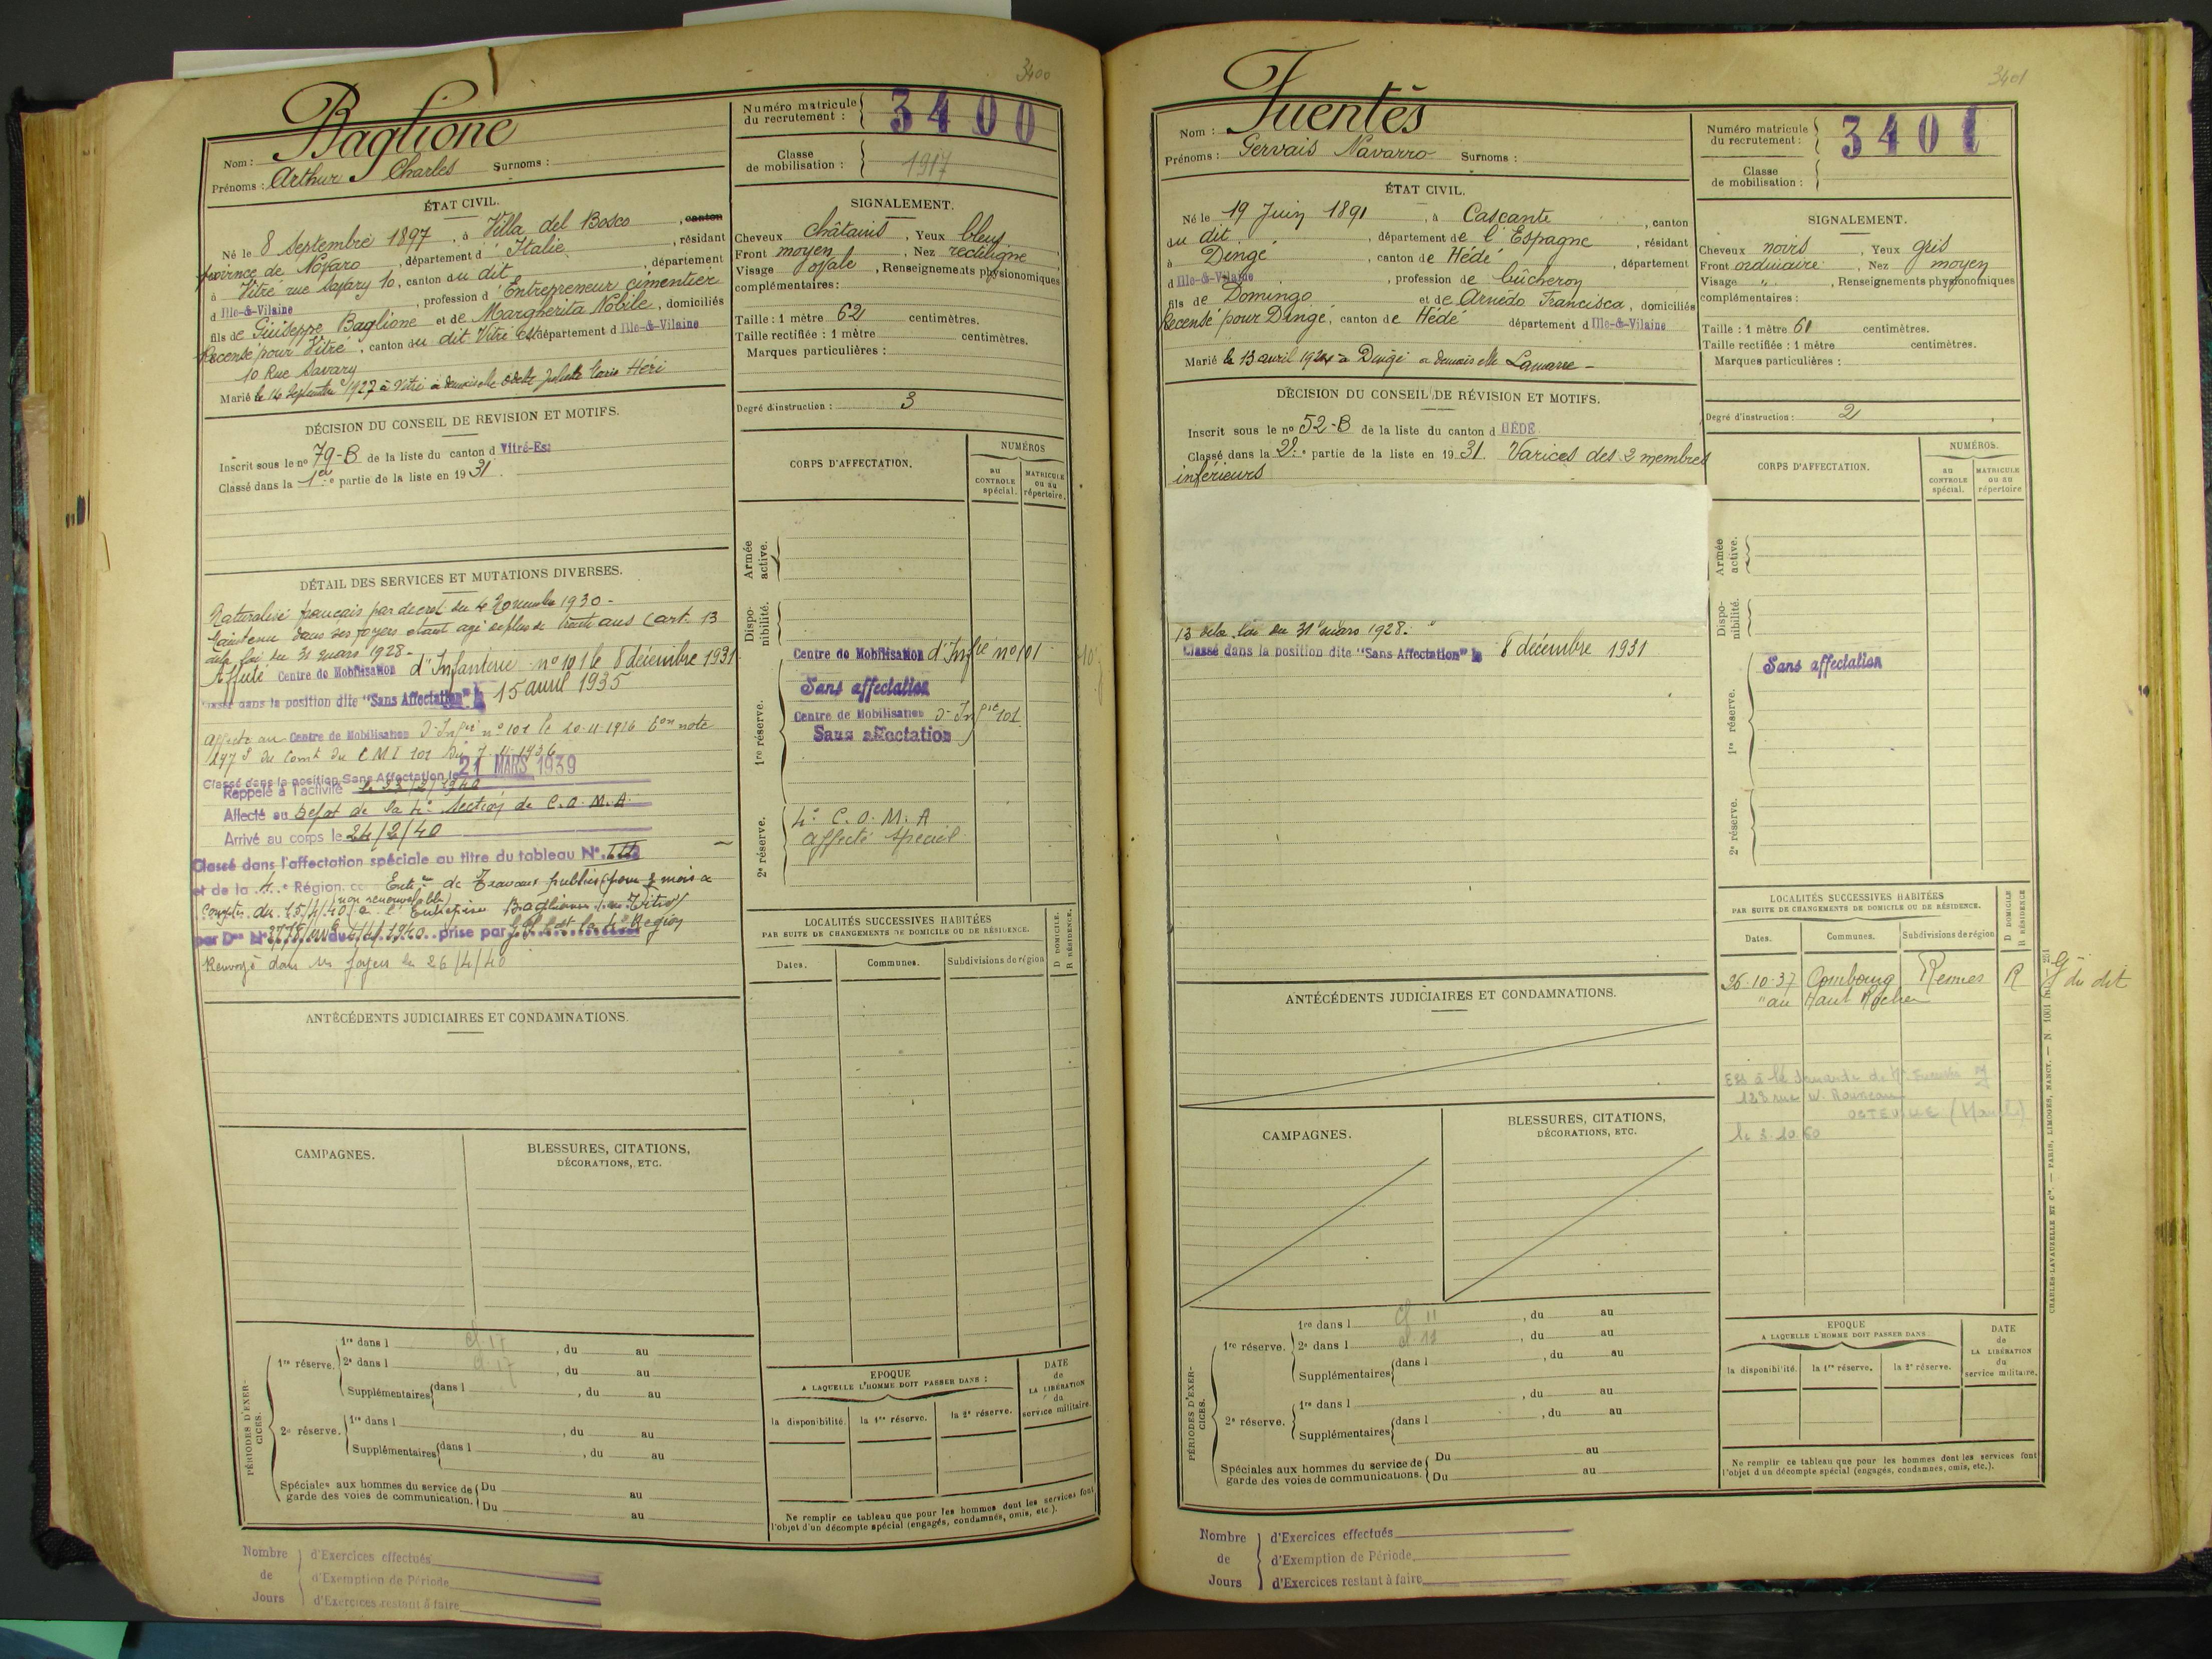 3400
Baglione
Nom :
Prénoms : Arthur Charles Surnoms :
Numéro matricule du recrutement : 3400
Classe de mobilisation : 1917
ÉTAT CIVIL.
Né le 8 Septembre 1897, à Villa del Bosco, canton
province de Novaro, département d' Italie, résidant
à Vitré rue Savary 10, canton du dit, département
d Ille-&-Vilaine, profession d' Entrepreneur cimentier
fils de Guiseppe Baglione et de Margherita Nobile, domiciliés
Recensé pour Vitré, canton du dit Vitré Est département d Ille-&-Vilaine
10 Rue Savary
Marié le 14 Septembre 1927 à Vitré à demoiselle Odette Juliette Héri
SIGNALEMENT.
Cheveux châtains, Yeux bleus
Front moyen, Nez rectiligne
Visage ovale, Renseignements physionomiques
complémentaires :
Taille : 1 mètre 62 centimètres.
Taille rectifiée : 1 mètre centimètres.
Marques particulières :
Degré d'instruction : 3
DÉCISION DU CONSEIL DE RÉVISION ET MOTIFS.
Inscrit sous le n° 79-B de la liste du canton d Vitré-Est
Classé dans la 1ère partie de la liste en 1931.
DÉTAIL DES SERVICES ET MUTATIONS DIVERSES.
Naturalisé français par décret du 1930 -
Maintenu dans ses foyers étant agé de plus de trente ans (art. 13
de la loi du 31 mars 1928 -
Affecté Centre de Mobilisation d'Infanterie n° 101 le 8 décembre 1931
Classé dans la position dite "Sans Affectation" le 15 avril 1935
Affecté au Centre de Mobilisation d'Infie n° 101 le 20-11-1936 note
1497 S du Comt du C M I 101 du 7-11-1936
Classé dans la position Sans Affectation le 21 MARS 1939
Rappelé à l'activité le 23/2/1940
Affecté au Dépot de la 4e Section de C.O.M.A.
Arrivé au corps le 24/2/40
Classé dans l'affectation spéciale au titre du tableau N° III
et de la 4e Région Entr. de Travaux publics pour 2 mois à
compter du 25/4/40 (non renouvelable) à l'Entreprise Baglione à Vitré
par Don N° 3778/ du 1940 prise par la 4e Région
Renvoyé dans ses foyers le 26/4/40
CORPS D'AFFECTATION.
NUMÉROS
au CONTROLE spécial.
MATRICULE ou au répertoire.
Armée active.
Disponibilité.
1re réserve.
Centre de Mobilisation d'Infie n° 101
Sans affectation
Centre de Mobilisation d'Infie 101
Sans affectation
2e réserve.
4e C.O.M.A
affecté spécial
LOCALITÉS SUCCESSIVES HABITÉES
PAR SUITE DE CHANGEMENTS DE DOMICILE OU DE RÉSIDENCE.
D DOMICILE.
R RÉSIDENCE.
Dates. Communes. Subdivisions de région
ANTÉCÉDENTS JUDICIAIRES ET CONDAMNATIONS.
CAMPAGNES.
BLESSURES, CITATIONS,
DÉCORATIONS, ETC.
PÉRIODES D'EXERCICES.
1re réserve.
1re dans l cl 17, du au
2e dans l cl 17, du au
Supplémentaires dans l, du au
2e réserve.
1re dans l, du au
Supplémentaires dans l, du au
Spéciales aux hommes du service de garde des voies de communication.
Du au
Du au
EPOQUE
A LAQUELLE L'HOMME DOIT PASSER DANS :
la disponibilité. la 1re réserve. la 2e réserve.
DATE de LA LIBÉRATION du service militaire.
Ne remplir ce tableau que pour les hommes dont les services font
l'objet d'un décompte spécial (engagés, condamnés, omis, etc.).
Nombre de Jours
d'Exercices effectués
d'Exemption de Période
d'Exercices restant à faire
3401
Fuentès
Nom :
Prénoms : Gervais Navarro Surnoms :
Numéro matricule du recrutement : 3401
Classe de mobilisation :
ÉTAT CIVIL.
Né le 19 Juin 1891, à Cascante, canton
du dit, département de l'Espagne, résidant
à Dingé, canton de Hédé, département
d Ille-&-Vilaine, profession de bûcheron
fils de Domingo et de Arnédo Francisca, domiciliés
Recensé pour Dingé, canton de Hédé département d Ille-&-Vilaine
Marié le 13 avril 1921 à Dingé à demoiselle Lamarre -
SIGNALEMENT.
Cheveux noirs, Yeux gris
Front ordinaire, Nez moyen
Visage ", Renseignements physionomiques
complémentaires :
Taille : 1 mètre 61 centimètres.
Taille rectifiée : 1 mètre centimètres.
Marques particulières :
Degré d'instruction : 2
DÉCISION DU CONSEIL DE RÉVISION ET MOTIFS.
Inscrit sous le n° 52-B de la liste du canton d HÉDÉ
Classé dans la 2e partie de la liste en 1931. Varices des 2 membres
inférieurs
13 de la loi du 31 mars 1928.
Classé dans la position dite "Sans Affectation" le 8 décembre 1931
CORPS D'AFFECTATION.
NUMÉROS.
au CONTROLE spécial.
MATRICULE ou au répertoire
Armée active.
Disponibilité.
1re réserve.
Sans affectation
2e réserve.
LOCALITÉS SUCCESSIVES HABITÉES
PAR SUITE DE CHANGEMENTS DE DOMICILE OU DE RÉSIDENCE.
D DOMICILE
R RÉSIDENCE
Dates. Communes. Subdivisions de région
26-10-37 Combourg Rennes R Gie du dit
" au Haut Rocher
ESS à la demande de Mr
123 rue W. Rousseau
OCTEVILLE (Manche)
le 3.10.60
ANTÉCÉDENTS JUDICIAIRES ET CONDAMNATIONS.
CAMPAGNES.
BLESSURES, CITATIONS,
DÉCORATIONS, ETC.
PÉRIODES D'EXERCICES.
1re réserve.
1re dans l cl 11, du au
2e dans l cl 11, du au
Supplémentaires dans l, du au
2e réserve.
1re dans l, du au
Supplémentaires dans l, du au
Spéciales aux hommes du service de garde des voies de communications.
Du au
Du au
EPOQUE
A LAQUELLE L'HOMME DOIT PASSER DANS :
la disponibilité. la 1re réserve. la 2e réserve.
DATE de LA LIBÉRATION du service militaire.
Ne remplir ce tableau que pour les hommes dont les services font
l'objet d'un décompte spécial (engagés, condamnés, omis, etc.).
CHARLES-LAVAUZELLE ET Cie. — PARIS, LIMOGES, NANCY. — N 1001
Nombre de Jours
d'Exercices effectués
d'Exemption de Période
d'Exercices restant à faire